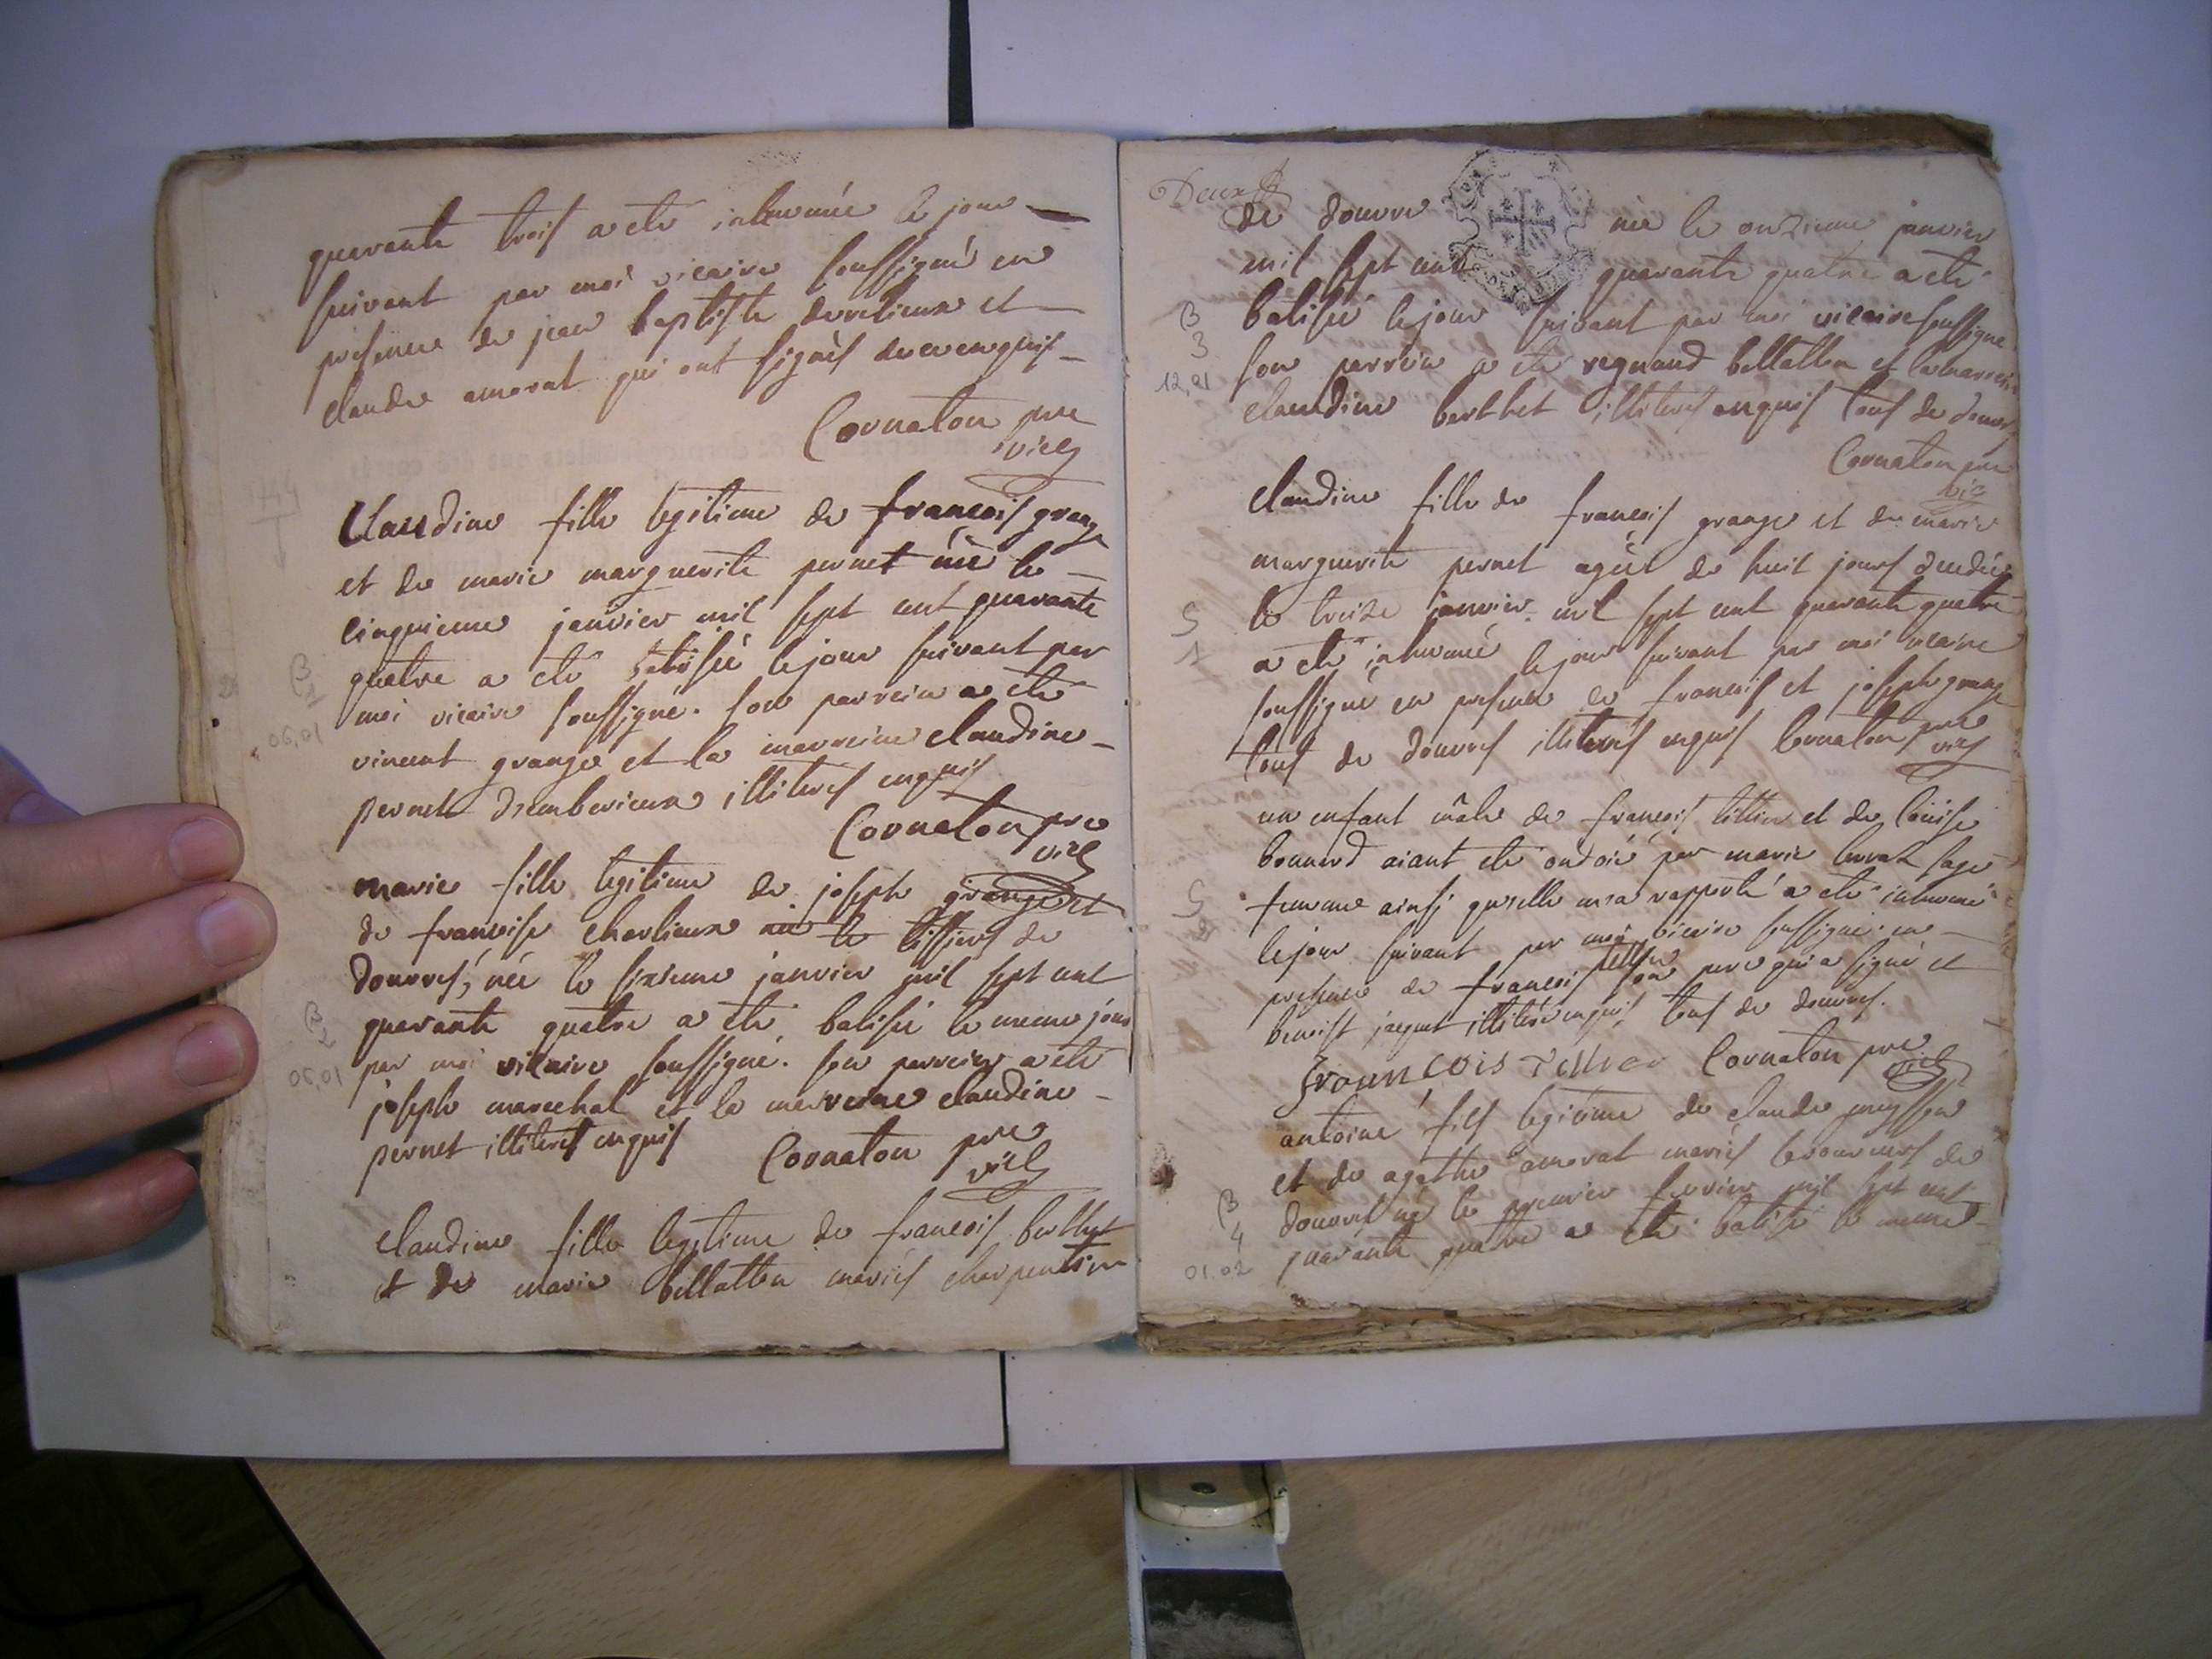 quarante trois a ete inhumée le jour
suivant par moi vicaire soussigné en
presence de jean baptiste
claude amorat qui ont signés de ce enquis
Cornaton pre
vic
1744
Claudine fille legitime de francois grange
et de marie marguerite pernet née le
cinquieme janvier mil sept cent quarante
quatre a ete batisée le jour suivant par
moi vicaire soussigné. son parrein a ete
vincent grange et la marreine claudine
pernet d'ambericux illiteres enquis
Cornaton pre
vic
B
2
06,01
marie fille legitime de joseph grange et
de francoise charlieux née le tissiers de
douvres, née le sixieme janvier mil sept cent
quarante quatre a ete batisée le meme jour
par moi vicaire soussigné. son parrein a ete
joseph marechal et la marreine claudine
pernet illiteres enquis Cornaton pre
vic
B
2
06,01
claudine fille legitime de francois berthet
et de marie bellatton mariés charpentier
Deux
de douvre née le onzieme janvier
mil sept cent quarante quatre a ete
batisée le jour suivant par moi vicaire soussigné
son parrein a ete regnaud bellatton et la marreine
claudine berthet illiteres enquis tous de douvre
Cornaton pre
vic
B
3
12,01
claudine fille de francois grange et de marie
marguerite pernet agée de huit jours decedée
le treize janvier mil sept cent quarante quatre
a ete inhumée le jour suivant par moi vicaire
soussigné en presence de francois et joseph grange
tous de douvres illiteres enquis Cornaton pre
vic
S
1
un enfant mâle de francois tillier et de loüise
bonnard aiant ete ondoié par marie sage
femme ainsi qu'elle m'a rapporté a ete inhumé
le jour suivant par moi vicaire soussigné en
presence de francois tillier son pere qui a signé et
benoist jaquet illiteré enquis tous de douvres.
françois Tillier Cornaton pre
vic
S
2
antoine fils legitime de claude
et de agathe amorat mariés laboureurs de
douvres né le premier fevrier mil sept cent
quarante quatre a ete batisé le meme
B
4
01.02